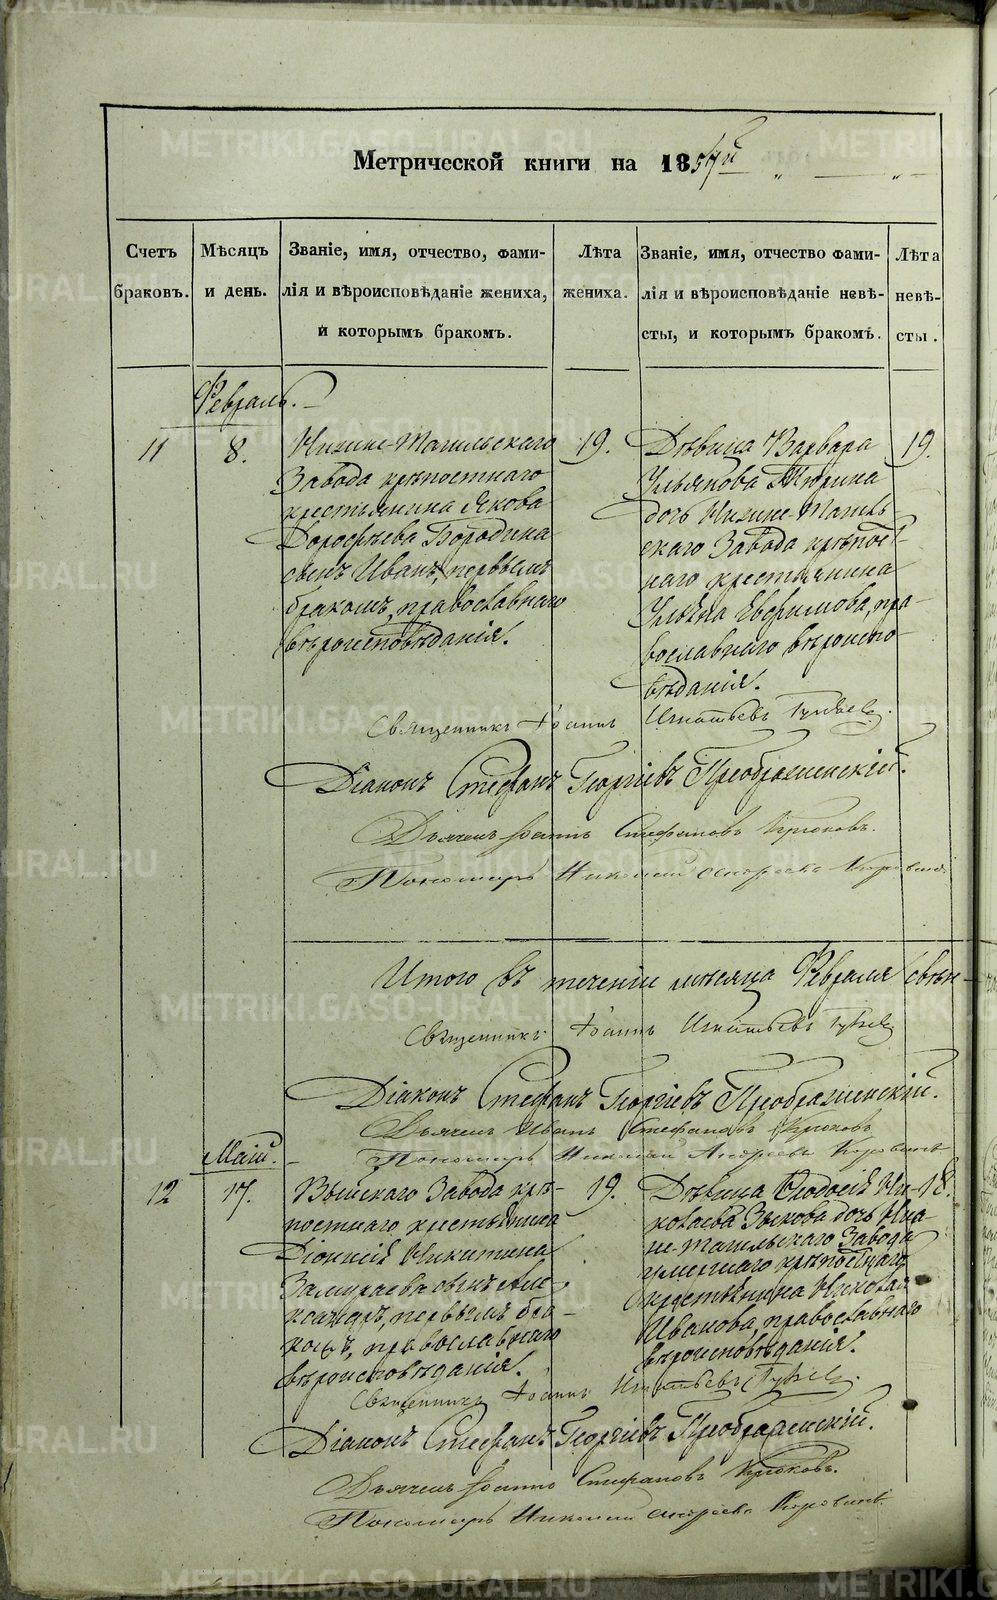 METRIKI.GASO-URAL.RU
Метрической книги на 1857й
Счетъ браковъ.
Мѣсяцъ и день.
Званіе, имя, отчество, фами-
лія и вѣроисповѣданіе жениха,
и которымъ бракомъ.
Лѣта жениха.
Званіе, имя, отчество фами-
лія и вѣроисповѣданіе невѣ-
сты, и которымъ бракомъ.
Лѣта невѣ-
сты.
Февраль.
11
8.
Нижне-Тагильскаго
Завода крѣпостнаго
крестьянина Якова
Дорофѣева Бородина
сынъ Иванъ, первымъ
бракомъ, православнаго
вѣроисповѣданія.
19.
Дѣвица Варвара
Ульянова Тюрина
дочь Нижне-Тагиль
скаго Завода крѣпост
наго крестьянина
Ульяна Евфимова, пра-
вославнаго вѣроиспо-
вѣданія.
19.
Священникъ Іоаннъ Игнатьевъ
Діаконъ Стефанъ Георгіевъ Преображенскій.
Дьячекъ Іоаннъ Стефановъ Крюковъ.
Пономарь Николай Андреевъ Коровинъ
Итого въ теченіи мѣсяца Февраля
Священникъ Іоаннъ Игнатьевъ
Діаконъ Стефанъ Георгіевъ Преображенскій.
Дьячекъ Иванъ Стефановъ Крюковъ
Пономарь Николай Андреевъ Коровинъ
Маій.
12
17.
Выйскаго Завода крѣ-
постнаго крестьянина
Діонисія Никитина
сынъ Але-
ксандръ, первымъ бра-
комъ, православнаго
вѣроисповѣданія.
19.
Дѣвица Ѳеодосія Ни-
колаева Зыкова дочь Ниж-
не-Тагильскаго Завода
умершаго крѣпостнаго
крестьянина Николая
Иванова, православнаго
вѣроисповѣданія.
18.
Священникъ Іоаннъ Игнатьевъ
Діаконъ Стефанъ Георгіевъ Преображенскій.
Дьячекъ Іоаннъ Стефановъ Крюковъ.
Пономарь Николай Андреевъ Коровинъ.